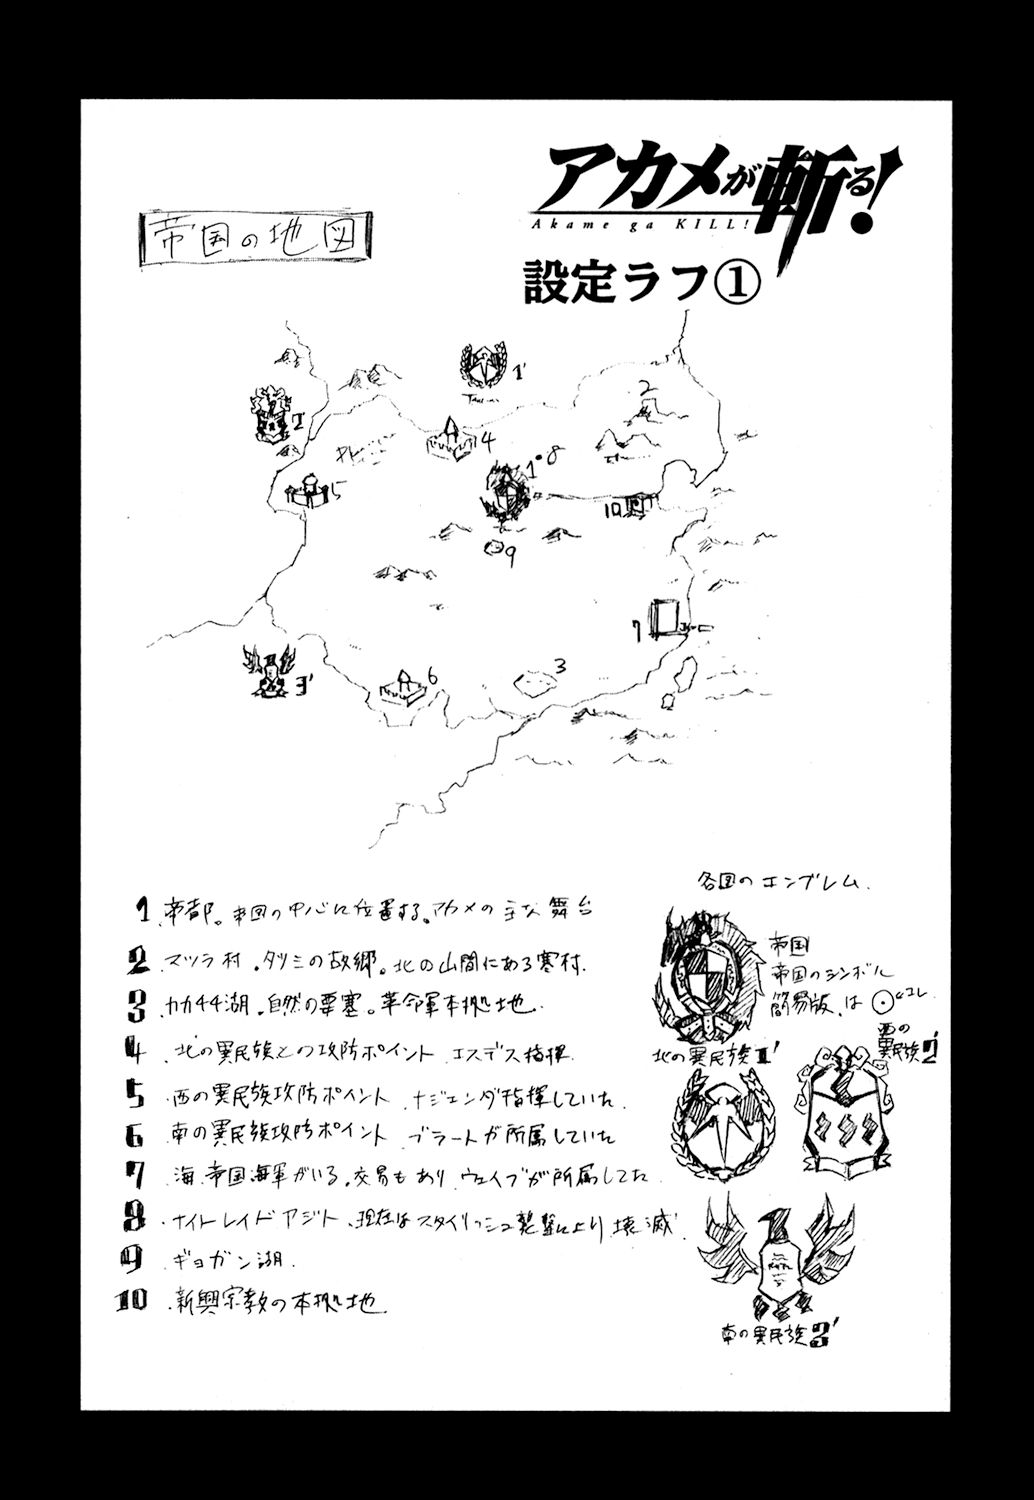 アカメが斬る!
Akame ga KILL!
設定ラフ①
帝国の地図
1'
2
2'
4
1・8
5
10
9
7
3
6
3'
1 帝都。帝国の中心に位置する。アカメの主な舞台
2 マツラ村。タツミの故郷。北の山間にある寒村.
3 カカ44湖。自然の要塞。革命軍本拠地.
4 北の異民族との攻防ポイント エスデス指揮.
5 西の異民族攻防ポイント ナジェンダ指揮していた.
6 南の異民族攻防ポイント ブラートが所属していた
7 海.帝国海軍がいる。交易もあり ウェイブが所属してた.
8 ナイトレイドアジト、現在はスタイリッシュ襲撃により壊滅
9 ギョガン湖.
10 新興宗教の本拠地
各国のエンブレム.
帝国
帝国のシンボル
簡易版.は ⊙←コレ
北の異民族1'
西の
異民族2'
南の異民族3'